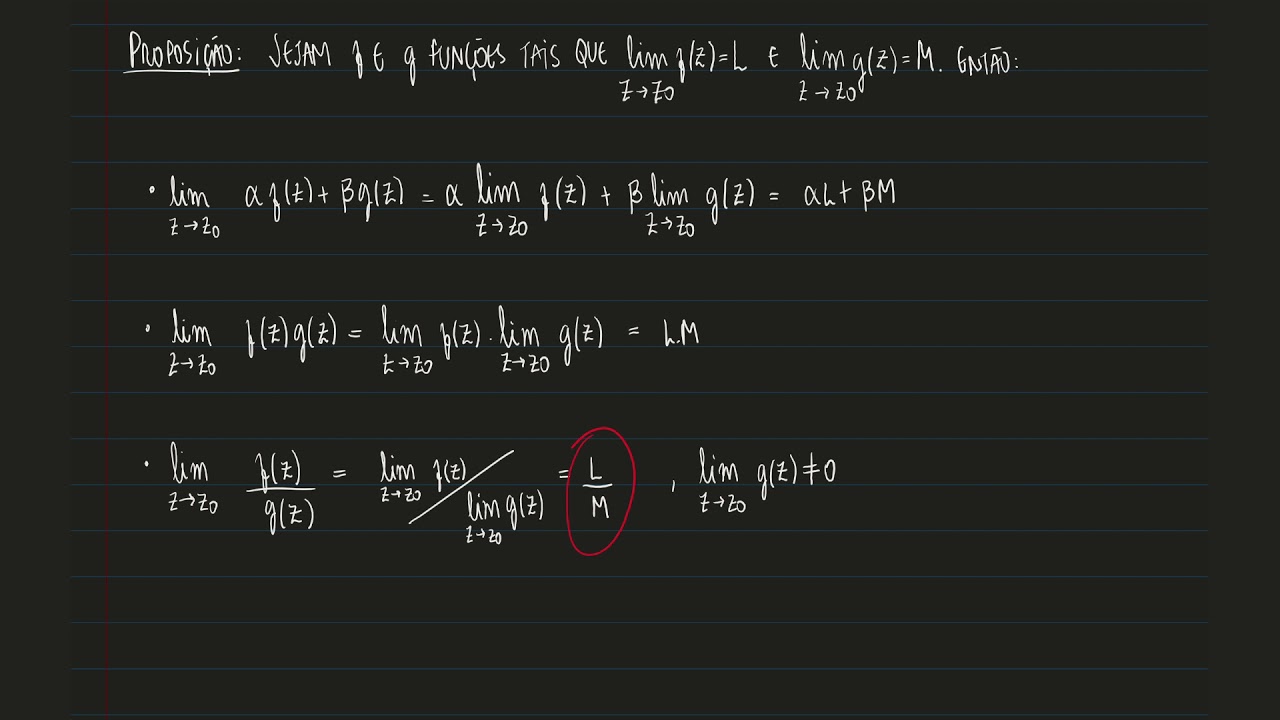 PROPOSIÇÃO: SEJAM f E g FUNÇÕES TAIS QUE lim_{z→z₀} f(z)=L E lim_{z→z₀} g(z)=M. ENTÃO:
• lim_{z→z₀} αf(z)+βg(z) = α lim_{z→z₀} f(z) + β lim_{z→z₀} g(z) = αL+βM
• lim_{z→z₀} f(z)g(z) = lim_{z→z₀} f(z) . lim_{z→z₀} g(z) = L.M
• lim_{z→z₀} f(z)/g(z) = lim_{z→z₀} f(z) / lim_{z→z₀} g(z) = L/M , lim_{z→z₀} g(z)≠0